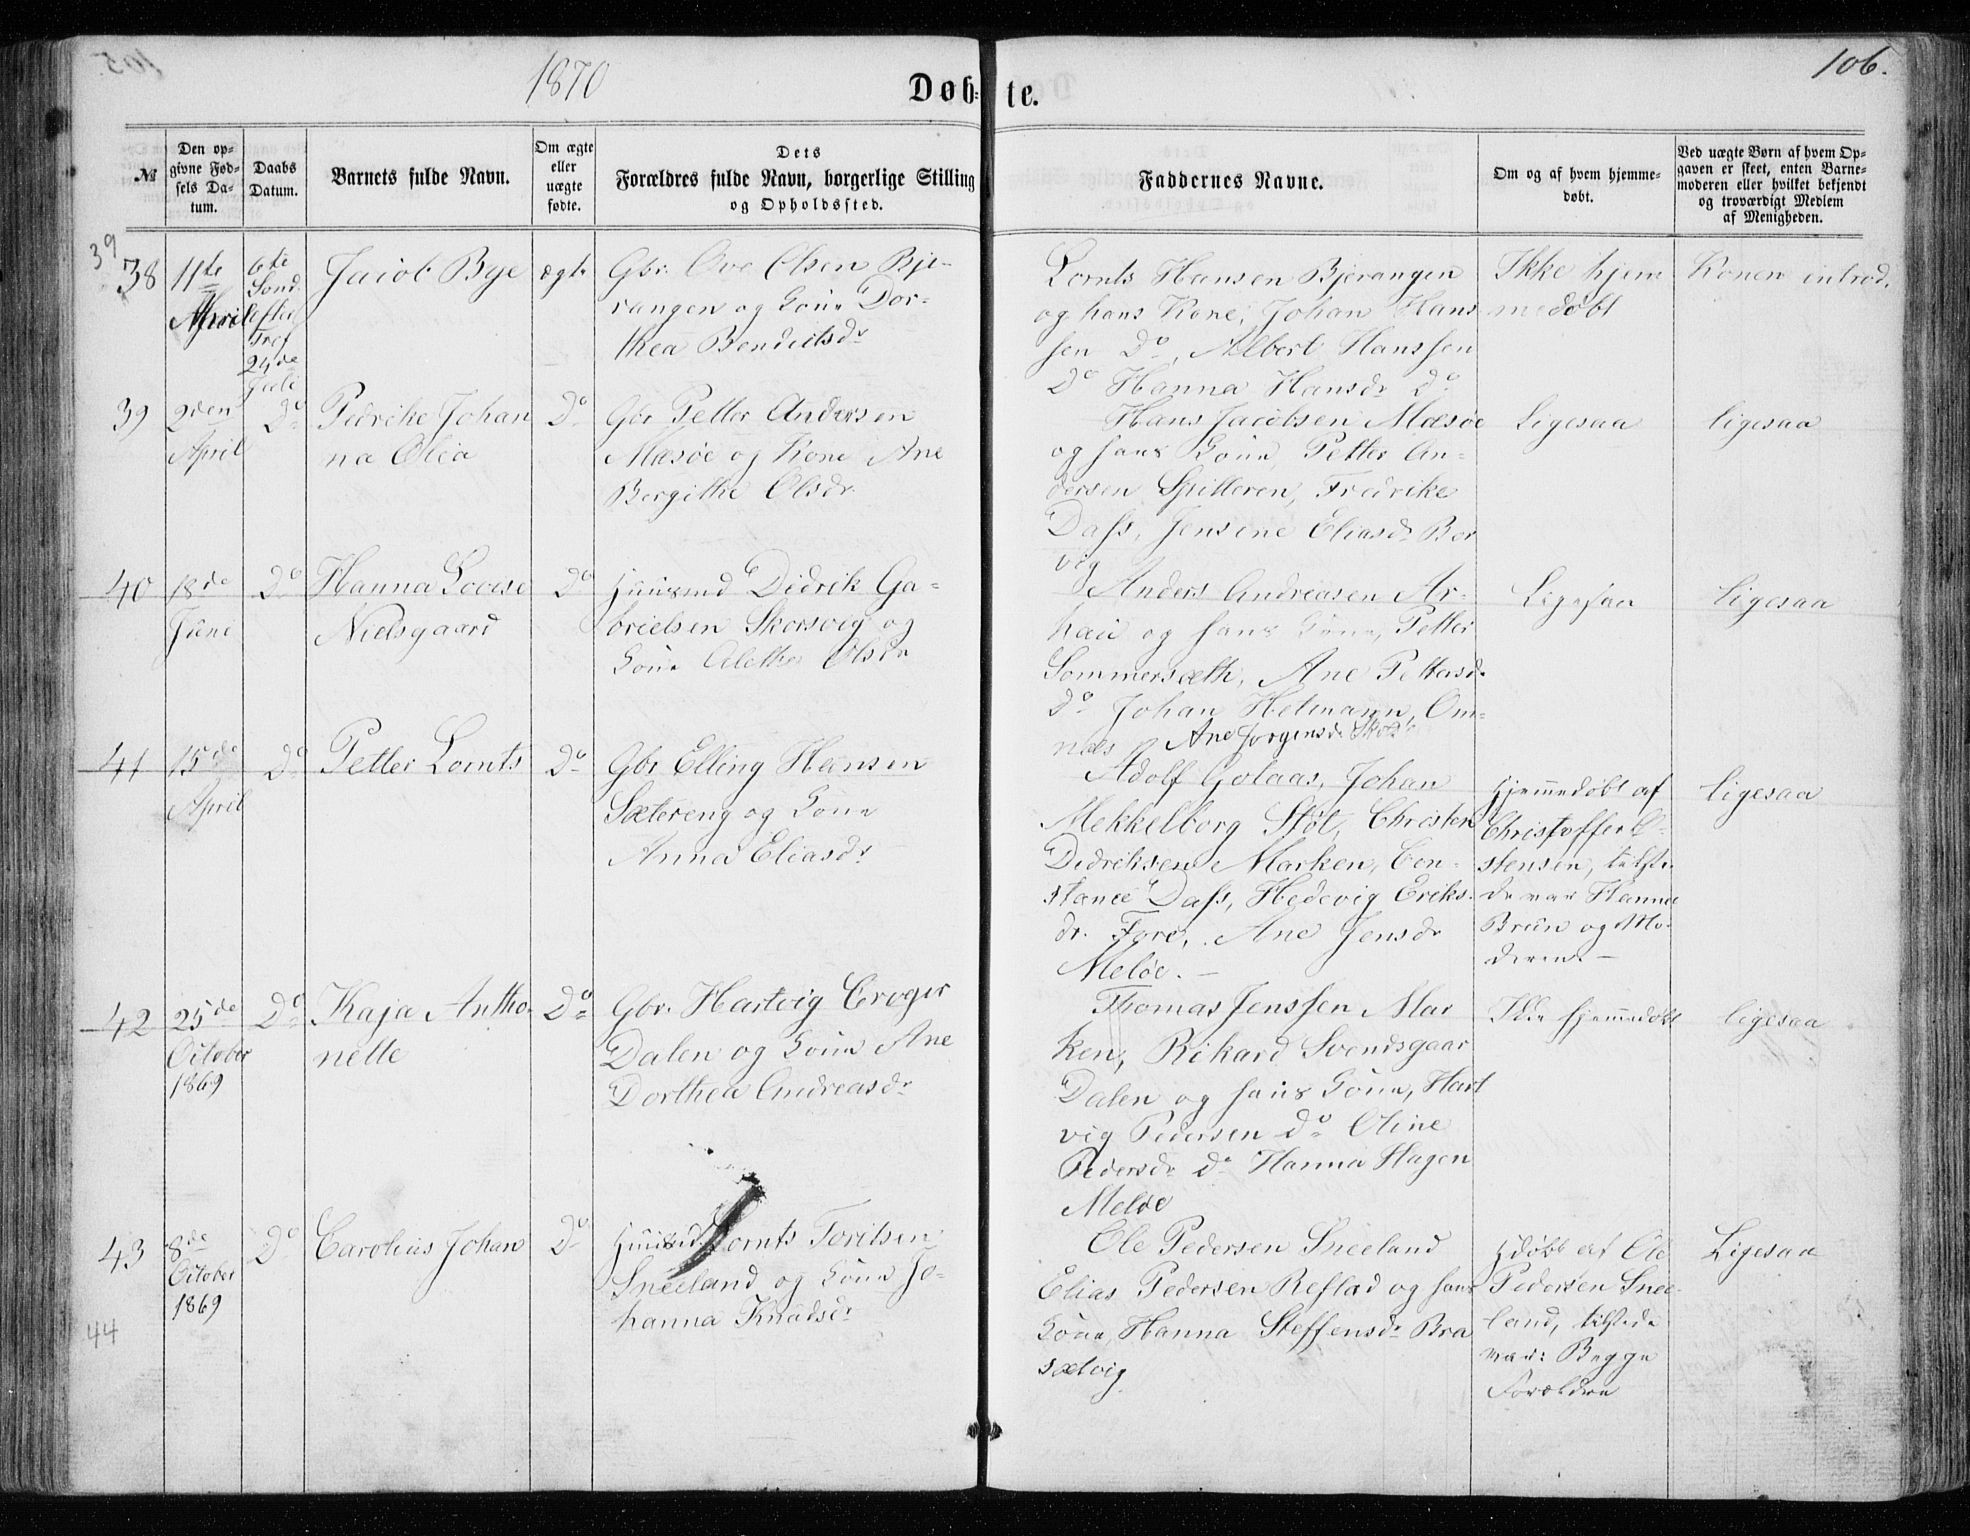 1870
106.
Døb-te.
№
Den opgivne Fødsels Datum.
Daabs Datum.
Barnets fulde Navn.
Om ægte eller uægte fødte.
Dets Forældres fulde Navn, borgerlige Stilling og Opholdssted.
Faddernes Navne.
Om og af hvem hjemmedøbt.
Ved uægte Børn af hvem Opgaven er skeet, enten Barnemoderen eller hvilket bekjendt og troværdigt Medlem af Menigheden.
39
38
11te
April
6te
Sønd.
efter
Tref
24de
Juli
Jacob Bye
ægte
Gbr. Ove Olsen Bje-
rangen og Kone Dor-
thea Bendictsdr
Lornts Hansen Bjerangen
og hans Kone, Johan Hans
sen Do, Albert Hanssen
Do Hanna Hansdr Do
Ikke hjem
medøbt
Konen introd.
39
2den
April
Do
Pedrike Johan
na Olea
Do
Gbr Petter Andersen
Mæsøe og Kone Ane
Bergithe Olsdr
Hans Jacobsen Mæsøe
og hans Kone, Petter An-
dersen Spilleren, Fredrike
Dass, Jensine Eliasdr Bor
vig
Ligesaa
ligesaa
40
18de
Juni
Do
Hanna Lovise
Nielsgaard
Do
Huusmd Didrik Ga-
brielsen Skorsvig og
Kone Alethe Olsdr
Anders Andreasen Ar-
hau og hans Kone, Petter
Sommersæth, Ane Pettersdr
Do Johan Helmann, Om-
næs, Ane Jørgensdr
Ligesaa
ligesaa
41
15de
April
Do
Petter Lornts
Do
Gbr Elling Hansen
Sætereng og Kone
Anna Eliasdr
Adolf Golaas, Johan
Mekkelborg Støt, Christen
Didriksen Marken, Con-
stance Dass, Hedevig Eriks-
dr. Fore, Ane Jensdr
Meløe.
Hjemmedøbt af
Christoffer C-
stensen, tilste-
de var Hanna
Brun og Mo-
deren.
ligesaa
42
25de
October
1869
Do
Kaja Antho-
nette
Do
Gbr. Hartvig Croger
Dalen og Kone Ane
Dorthea Andreasdr
Thomas Jenssen Mar
ken, Rikard Svendsgaar
Dalen og hans Kone, Hart
vig Pedersen Do Oline
Pedersdr Do Hanna Hagen
Meløe
Ikke hjemmedøbt
ligesaa
43
8de
October
1869
Do
Carolius Johan
Do
Huusmd. Lornts Toritsen
Sneeland og Kone Jo-
hanna Knudsdr
Ole Pedersen Sneeland
Elias Pedersen Restad og hans
Kone, Hanna Steffensdr Bra
sætvig
Hdøbt af Ole
Pedersen Snee-
land, tilstede
var: Begge
Forældre
Ligesaa
44